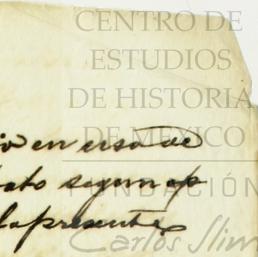 CENTRO DE
ESTUDIOS
DE HISTORIA
DE MEXICO
FUNDACIÓN
Carlos Slim
en uso de
segun
la presente